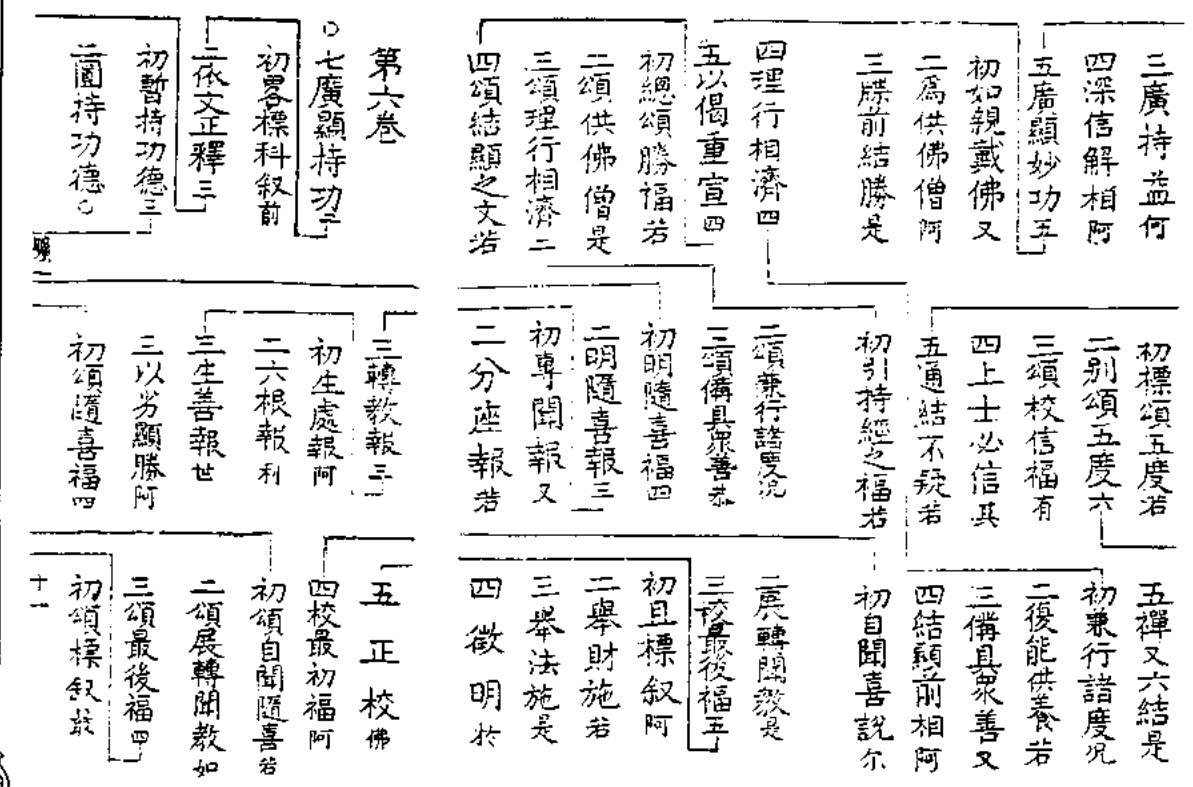 三廣持益何
四深信解相阿
五廣顯妙功五
初如親戴佛又
二爲供佛僧阿
三牒前結勝是
四理行相濟四
五以偈重宣四
初總頌勝福若
二頌供佛僧是
三頌理行相濟二
四頌結顯之文若
第六巻
○七廣顯持功二
初畧標科叙前
二依文正釋三
初暫持功德三
二圓持功德○
初標頌五度若
二别頌五度六
三頌校信福有
四上士必信其
五通結不疑若
初引持經之福若
二頌兼行諸度況
三頌備具衆善恭
初明隨喜福四
二明隨喜報三
初專聞報又
二分座報若
三轉教報三
初生處報阿
二六根報利
三生善報世
三以劣顯勝阿
初頌隨喜福四
五禪又六結是
初兼行諸度况
二復能供養若
三備具衆善又
四結顯前相阿
初自聞喜説尔
二展轉聞教是
三校最後福五
初且標叙阿
二舉財施若
三舉法施是
四徵明於
五正校佛
四校最初福阿
初頌自聞隨喜若
二頌展轉聞教如
三頌最後福四
初頌標叙最
十一